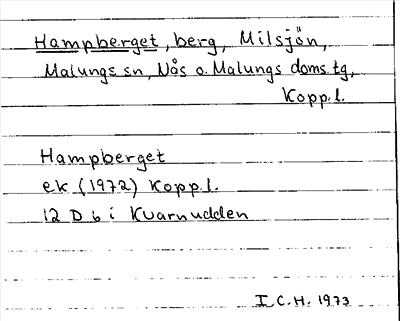 Hampberget, berg, Milsjön,
Malungs sn, Nås o. Malungs doms.tg,
Kopp.l.
Hampberget
ek (1972) Kopp.l.
12 D b i Kvarnudden
I.C.H. 1973